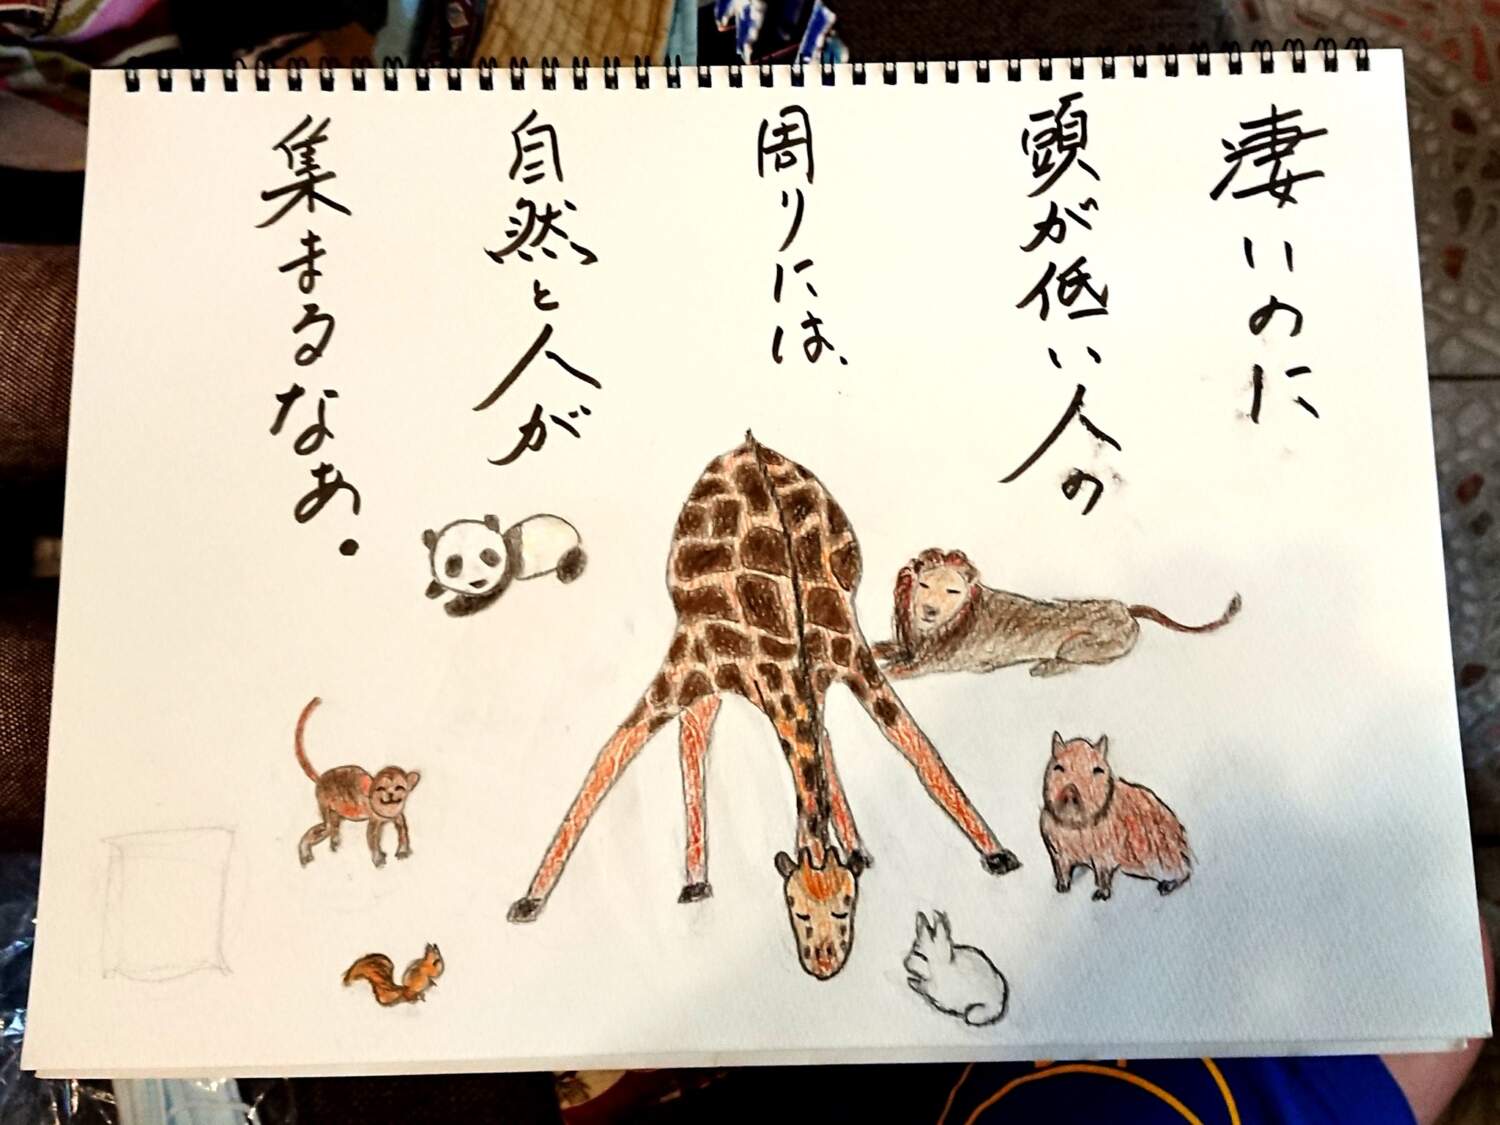 凄いのに
頭が低い人の
周りには、
自然と人が
集まるなぁ.